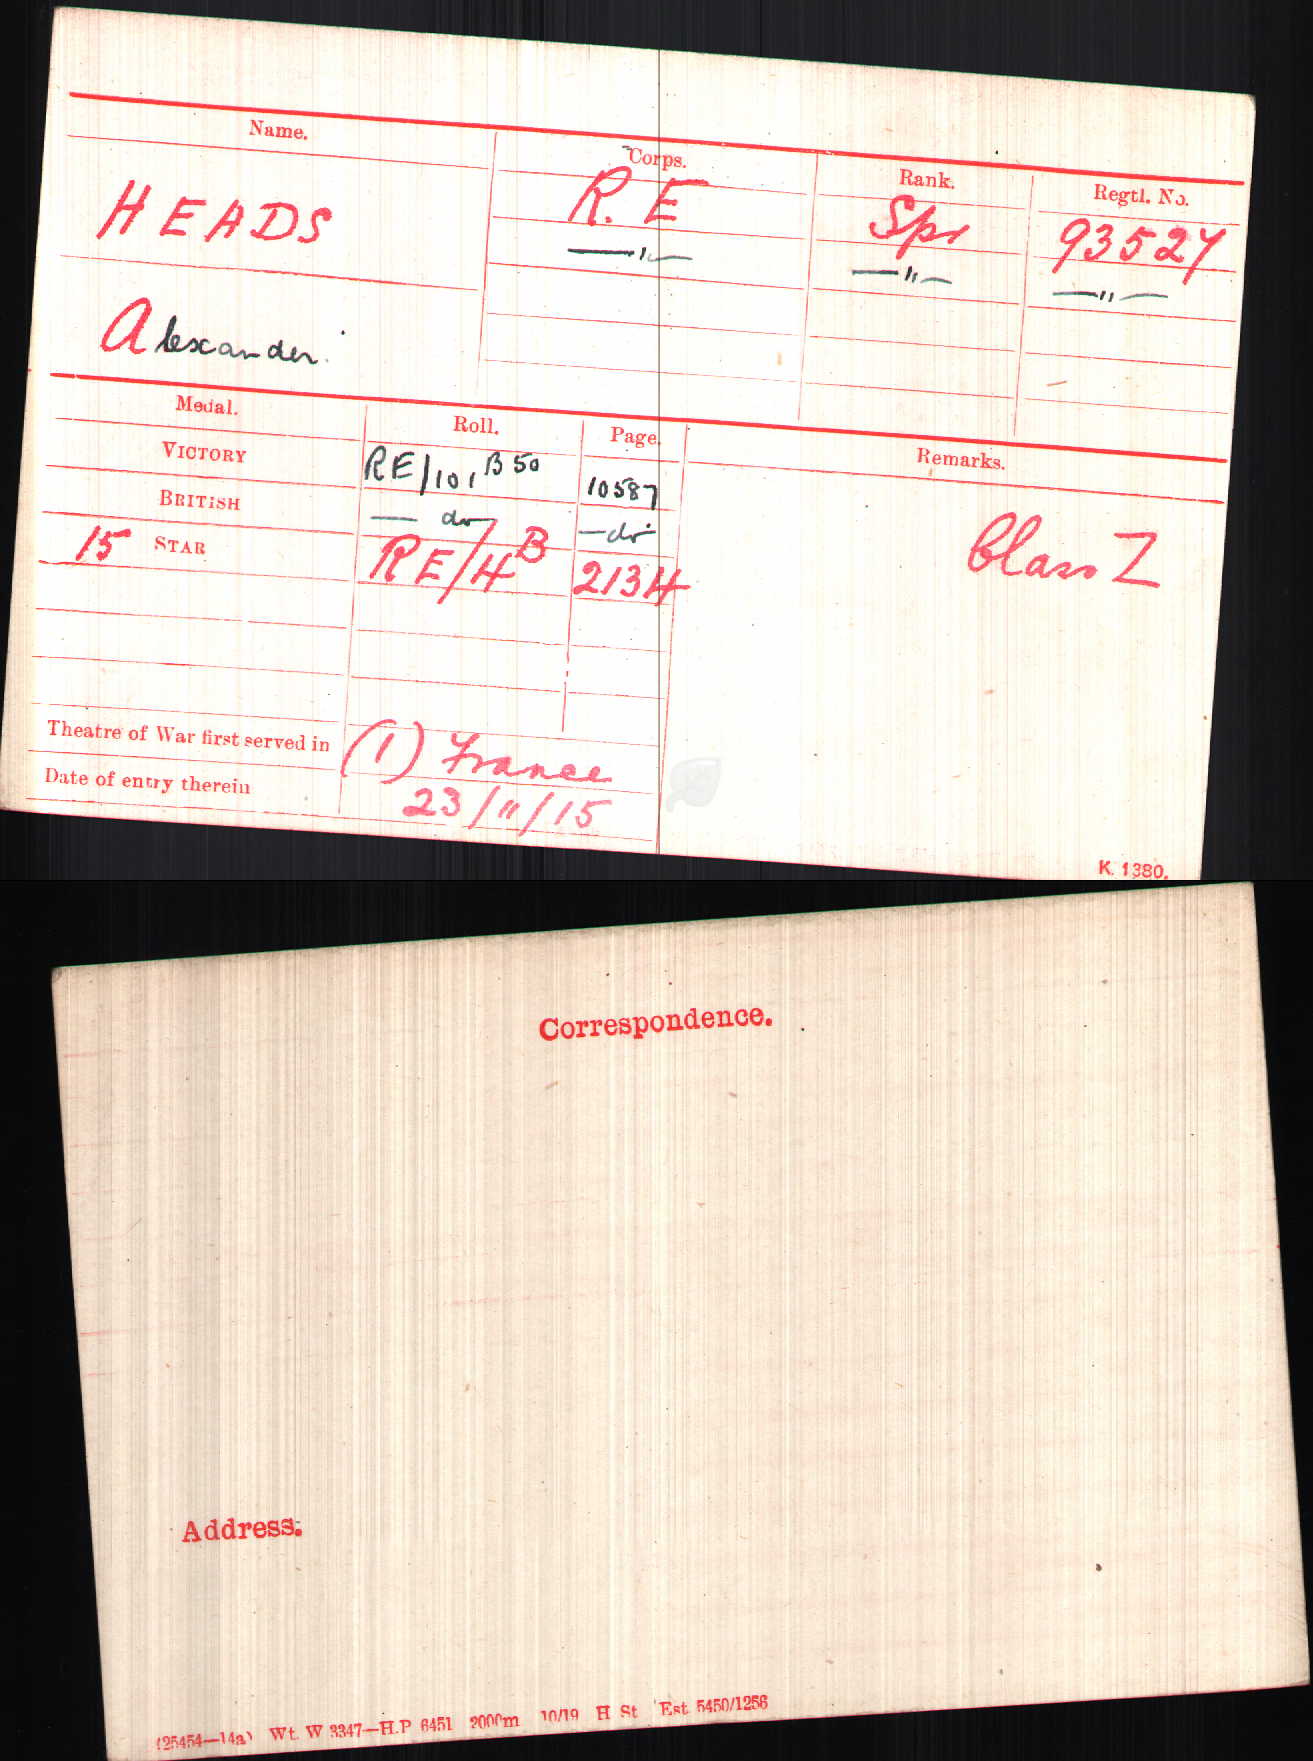 Name. Corps. Rank. Regtl. No.
HEADS R. E Spr 93527
—"— —"— —"—
Alexander.
Medal. Roll. Page. Remarks.
VICTORY RE/101 B50 10587
BRITISH — do —do— Class Z
15 STAR RE/4B 2134
Theatre of War first served in (1) France
Date of entry therein 23/11/15
K. 1380.
Correspondence.
Address.
(25454—14a) Wt. W 3347—H.P 6451 2000m 10/19 H St Est 5450/1256